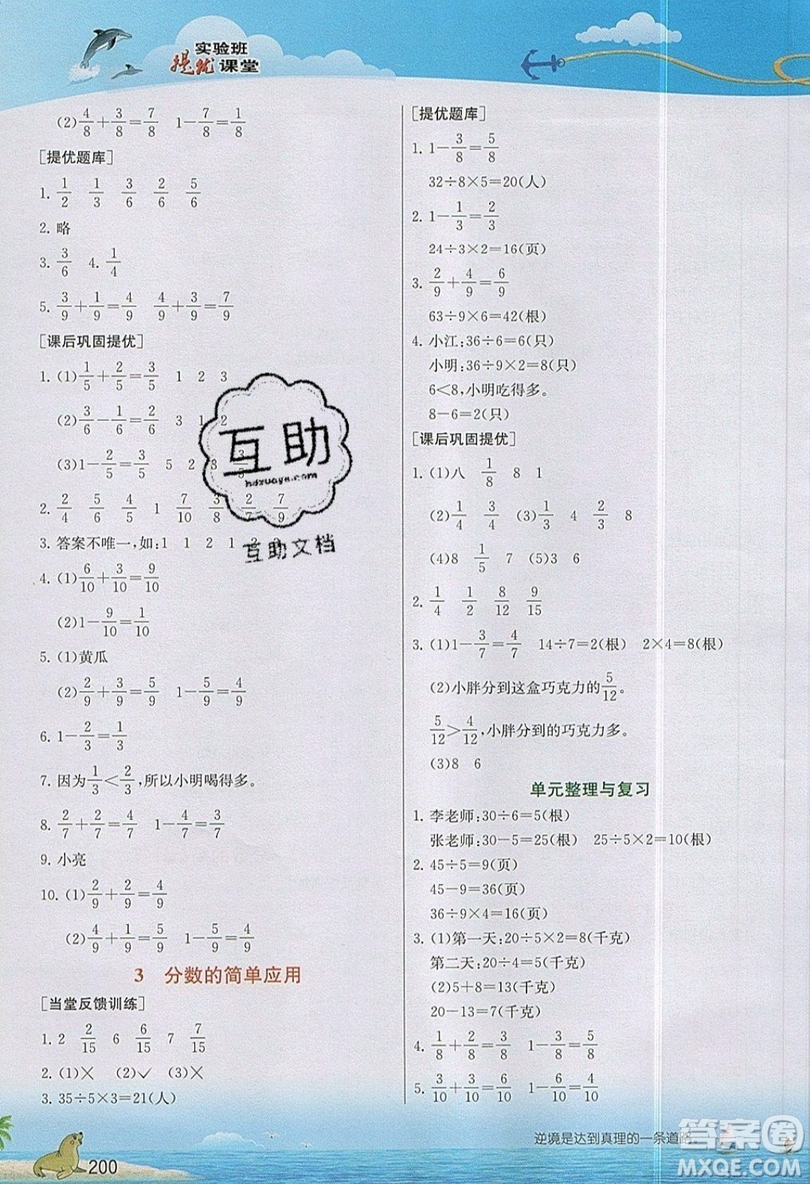 实验班
提优课堂
(2)4/8+3/8=7/8 1-7/8=1/8
[提优题库]
1. 1/2 1/3 2/6 5/6
2. 略
3. 3/6 4. 1/4
5. 3/9+1/9=4/9 4/9+3/9=7/9
[课后巩固提优]
1. (1)1/5+2/5=3/5 1 2 3
(2)3/6-1/6=2/6 3 1 2
(3)1-2/5=3/5 5 2
2. 2/4 4/5 5/6 1/4 7/10
3. 答案不唯一,如:1 1 2 1
4. (1)6/10+3/10=9/10
(2)1-9/10=1/10
5. (1)黄瓜
(2)2/9+3/9=5/9 1-5/9=4/9
6. 1-2/3=1/3
7. 因为1/3<2/3,所以小明喝得多。
8. 2/7+2/7=4/7 1-4/7=3/7
9. 小亮
10. (1)2/9+2/9=4/9
(2)4/9+1/9=5/9 1-5/9=4/9
3 分数的简单应用
[当堂反馈训练]
1. 2 2/15 6 6/15 7 7/15
2. (1)✕ (2)✓ (3)✕
3. 35÷5×3=21(人)
[提优题库]
1. 1-3/8=5/8
32÷8×5=20(人)
2. 1-1/3=2/3
24÷3×2=16(页)
3. 2/9+4/9=6/9
63÷9×6=42(根)
4. 小江:36÷6=6(只)
小明:36÷9×2=8(只)
6<8,小明吃得多。
8-6=2(只)
[课后巩固提优]
1. (1)八 1/8 8 1
(2)1/4 3/4 (3)2/4 2/4 8
(4)8 1/5 (5)3 6
2. 1/4 1/2 8/12 9/15
3. (1)1-3/7=4/7 14÷7=2(根) 2×4=8(根)
(2)小胖分到这盒巧克力的5/12。
5/12>4/12,小胖分到的巧克力多。
(3)8 6
单元整理与复习
1. 李老师:30÷6=5(根)
张老师:30-5=25(根) 25÷5×2=10(根)
2. 45÷5=9(页)
45-9=36(页)
36÷9×4=16(页)
3. (1)第一天:20÷5×2=8(千克)
第二天:20÷4=5(千克)
(2)5+8=13(千克)
20-13=7(千克)
4. 1/8+2/8=3/8 1-3/8=5/8
5. 2/9+4/9=6/9 1-6/9=3/9
逆境是达到真理的一条道路
200
互助
hdzuoye.com
互助文档
答案圈
MXQE.COM